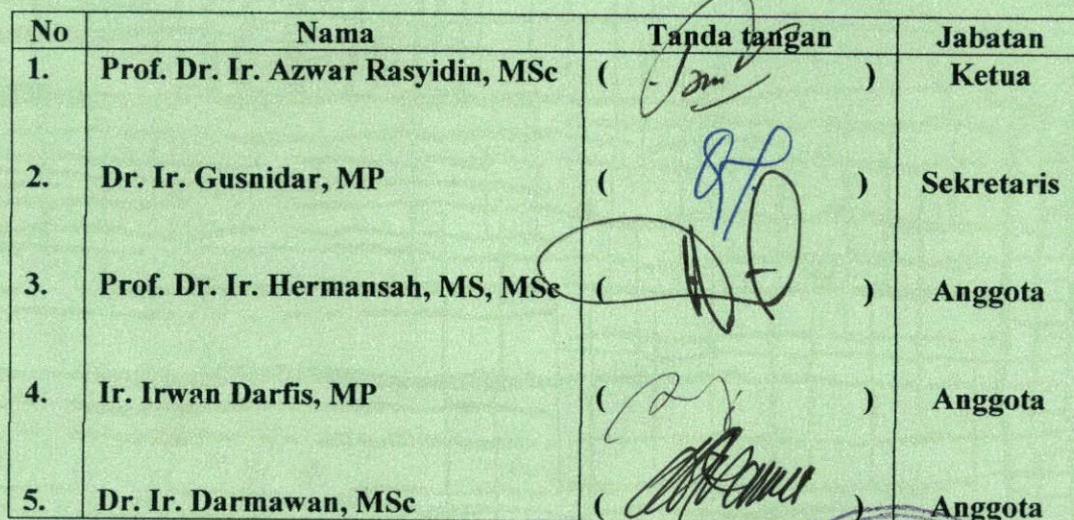 No Nama Tanda tangan Jabatan
1. Prof. Dr. Ir. Azwar Rasyidin, MSc ( ) Ketua
2. Dr. Ir. Gusnidar, MP ( ) Sekretaris
3. Prof. Dr. Ir. Hermansah, MS, MSc ( ) Anggota
4. Ir. Irwan Darfis, MP ( ) Anggota
5. Dr. Ir. Darmawan, MSc ( ) Anggota